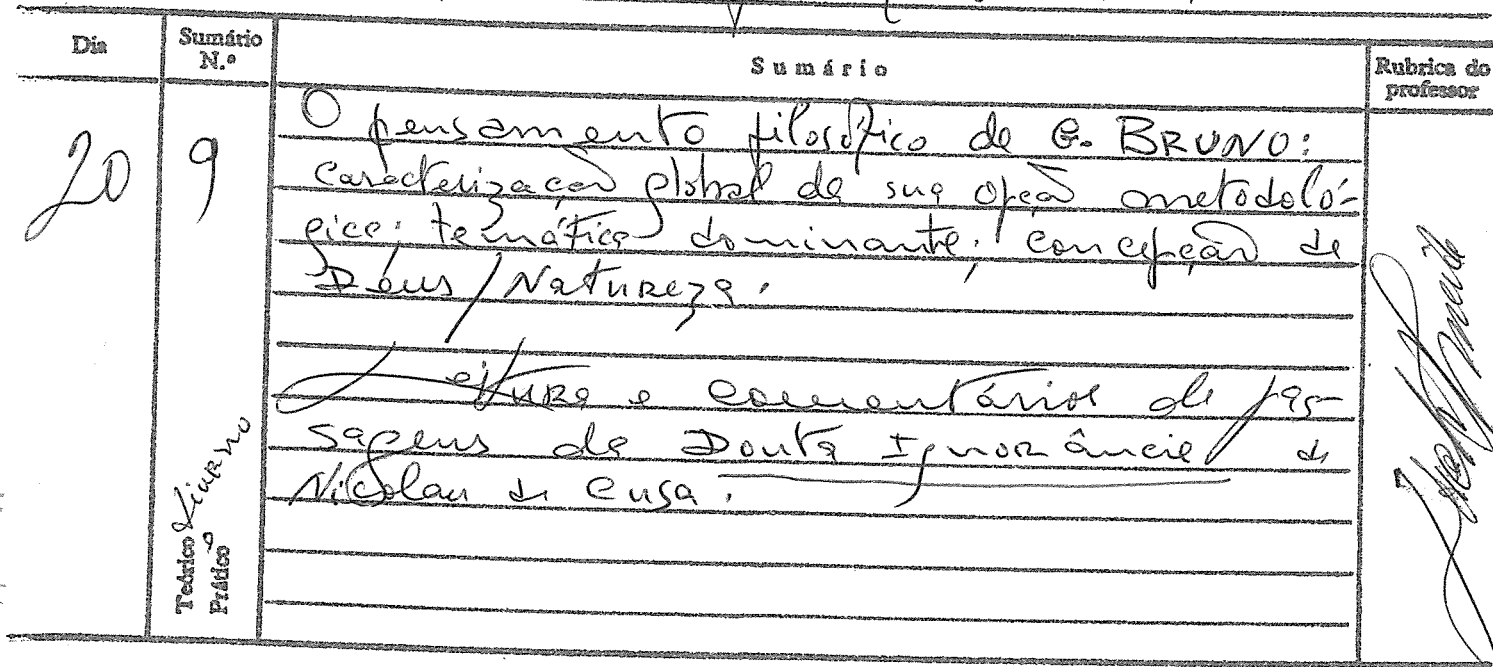 Dia
Sumário
N.º
Sumário
Rubrica do
professor
20
9
O pensamento filosófico de G. BRUNO:
caracterização global da sua opção metodoló-
gica; temática dominante; concepção de
Deus/Natureza.
Leitura e comentários de pas-
sagens da Douta Ignorância de
Nicolau de Cusa.
Teórico
Prático